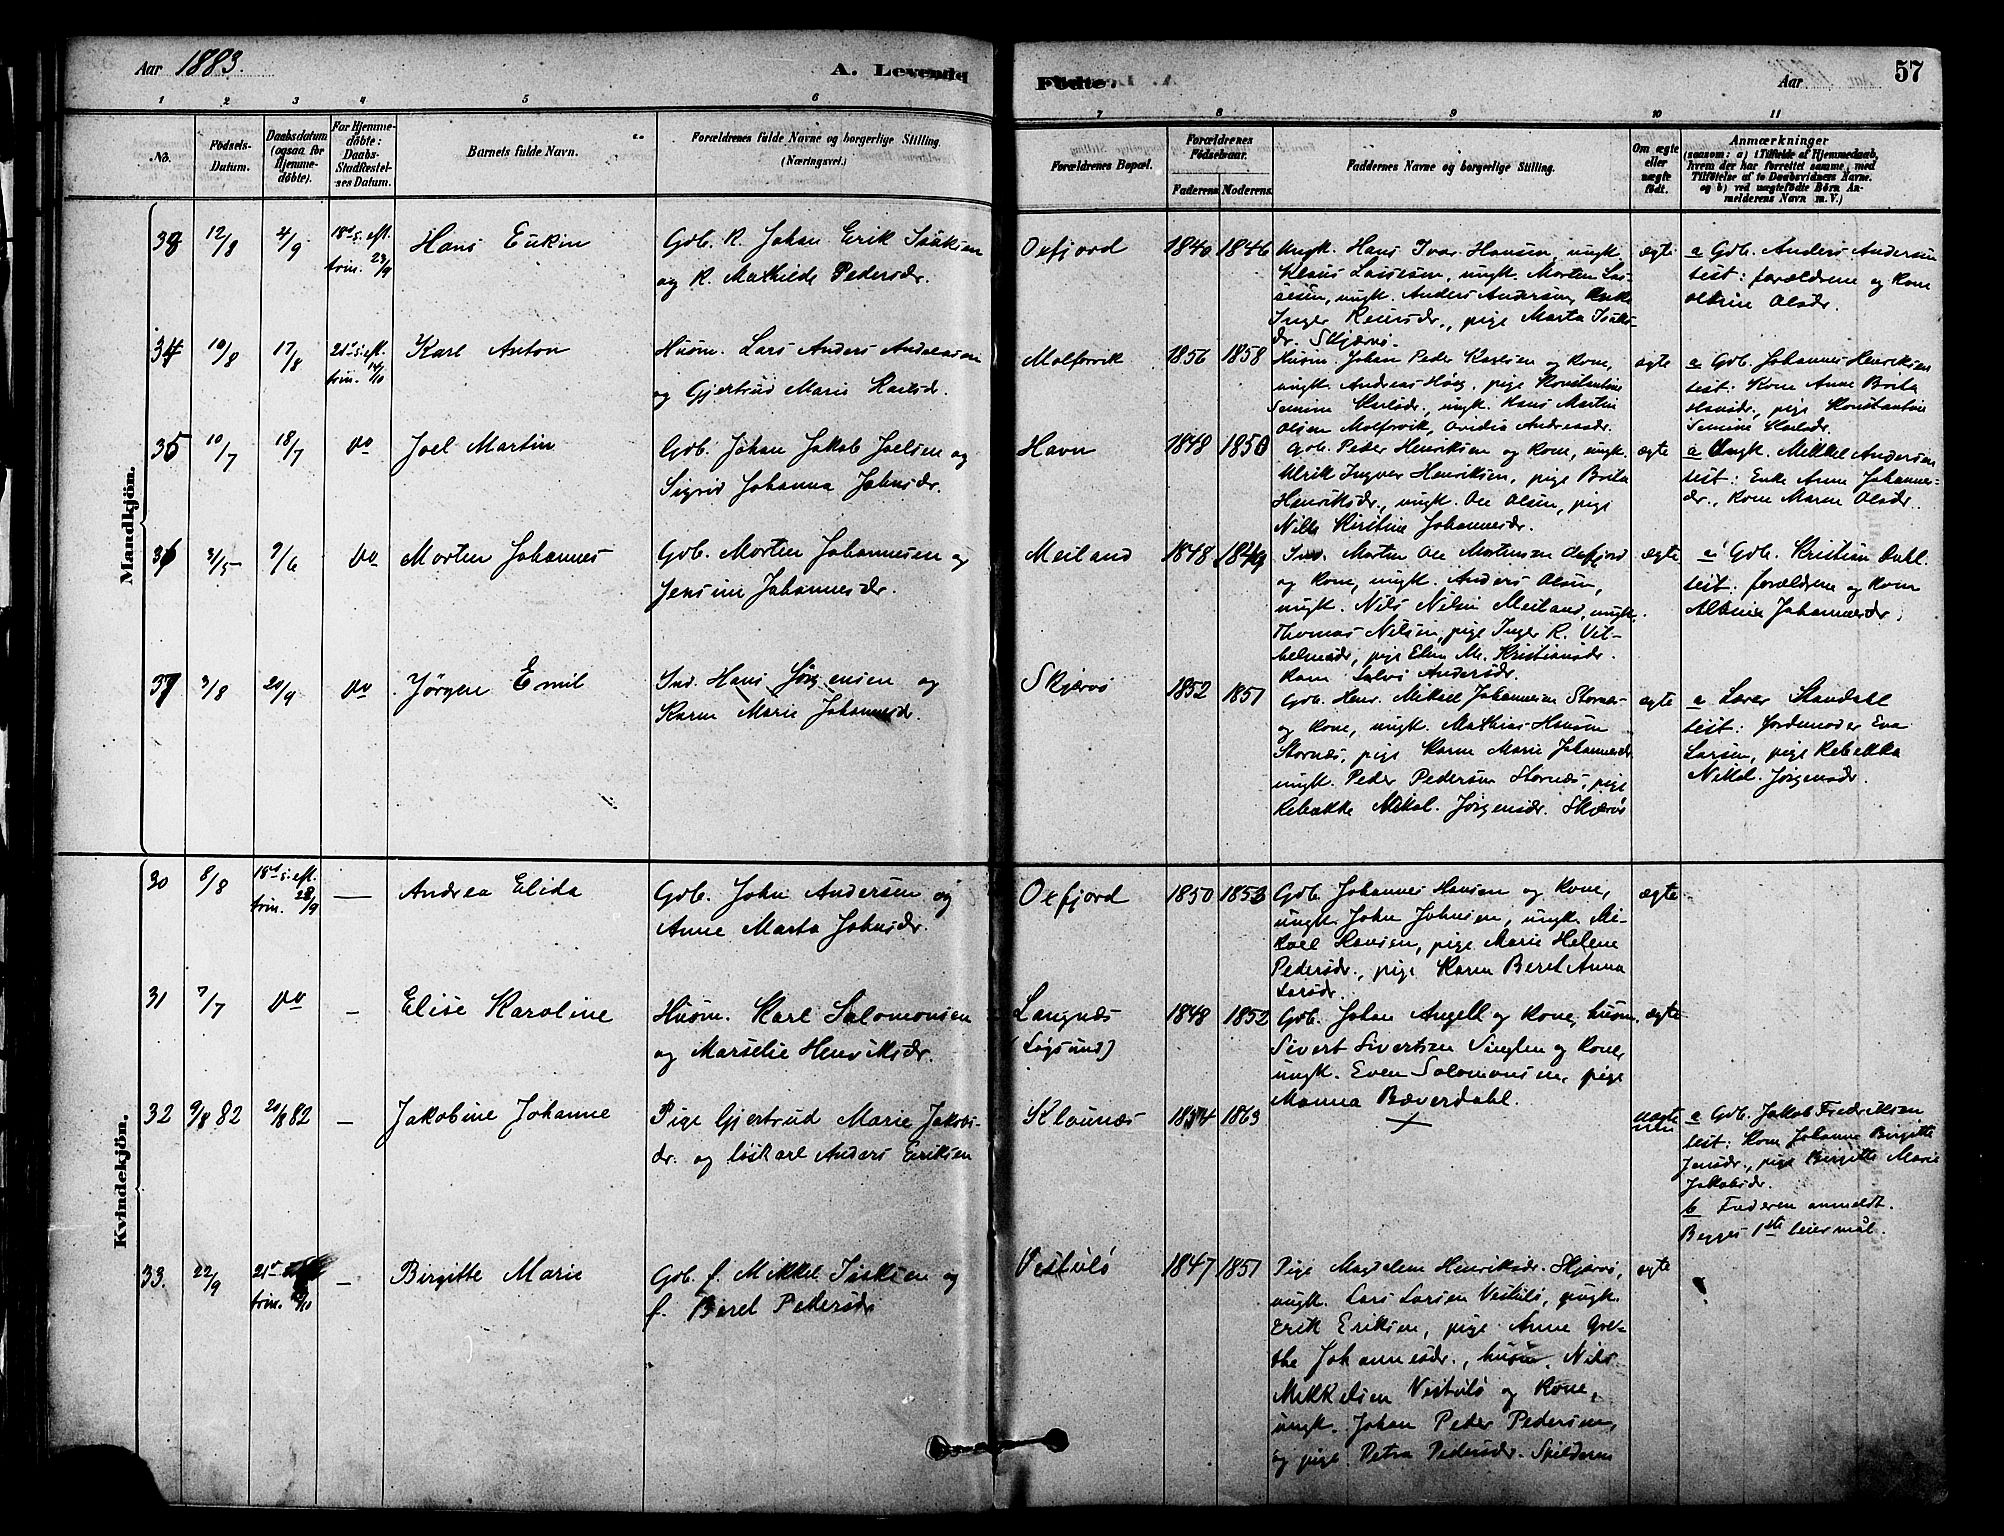 Aar 1883.
A. Levende
Fødte.
Aar
57
1 2 3 4 5 6 7 8 9 10 11
No.
Fødsels-
Datum.
Daabsdatum
(ogsaa for
Hjemme-
døbte).
For Hjemme-
døbte:
Daabs-
Stadfæstel-
ses Datum.
Barnets fulde Navn.
Forældrenes fulde Navne og borgerlige Stilling.
(Næringsvei.)
Forældrenes Bopæl.
Forældrenes
Fødselsaar.
Faderens. Moderens.
Faddernes Navne og borgerlige Stilling.
Om ægte
eller
uægte
født.
Anmærkninger
(saasom: a) i Tilfælde af Hjemmedaab,
hvem der har forrettet samme, med
Tilføielse af to Daabsvidners Navne.
og b) ved uægtefødte Børn An-
melderens Navn m. V.)
Mandkjön.
12/8 4/9 18d s. eft.
trin. 23/9
Hans
Gdb. R. Johan Erik Isaksen
og R. Mathilde Pedersdr.
Oxfjord
1840 1846
Ungk. Hans Ivar Hansen, ungk.
Klaus Lassesen, ungk. Morten Las-
sesen, ungk. Anders Andersen, Enke
Inger, pige Marta Isaks-
dr. Skjærvö.
ægte
a Gdb. Anders Andersen
test: forældrene og Kone
Olsdr.
34 10/8 17/8 21d s. eft.
trin. 14/10
Karl Anton
Husm. Lars Anders Andreasen
og Gjertrud Marie Karlsdr.
Molforvik
1856 1858
Husm. Johan Peder Karlsen og Kone,
ungk. Andreas Høeg, pige Konstantine
Semine Karlsdr., ungk. Hans Martin
Olsen Molforvik, Ovidia Andreasdr.
ægte
a Gdb. Johannes Henriksen
test: Kone Anne Brita
Hansdr., pige Konstantine
Semine Karlsdr.
35 10/7 18/7 do
Joel Martin
Gdb. Johan Jakob Joelsen og
Sigrid Johanna Johnsdr.
Havn
1848 1850
Gdb. Peder Henriksen og Kone, ungk.
Ulrik Ingver Henriksen, pige Brita
Henriksdr., ungk. Ole Olsen, pige
Nille Kirstine Johannesdr.
ægte
a Ungk. Mikkel Andersen
test: Enke Anne Johannes-
dr., Kone Maren Olsdr.
36 3/5 9/6 do
Morten Johannes
Gdb. Morten Johannesen og
Jensine Johannesdr.
Meiland
1848 1849
Ind. Morten Ole Mortensen Oxfjord
og Kone, ungk. Anders Olsen,
ungk. Nils Nilsen Meiland, ungk.
Thomas Nilsen, pige Inger R. Vil-
helmsdr., pige Elen M. Kristiansdr.
Kone Andersdr.
ægte
a Gdb. Kristian Dahl
test: forældrene og Kone
Albine Johannesdr.
37 3/8 20/9 do
Jørgen Emil
Ind. Hans Jørgensen og
Karen Marie Johannesdr.
Skjærvö
1852 1851
Gdb. Henr. Mikael Johannesen Stornes
og Kone, ungk. Mathias Hansen
Stornæs, pige Karen Marie Johannesdr.
ungk. Peder Pedersen Stornæs, pige
Rebekka Nikol. Jørgensdr. Skjærvö
ægte
a Lærer Standahl
test: Jordemoder Eva
Larsen, pige Rebekka
Nikol. Jørgensdr.
Kvindekjön.
30 8/8 18d s. eft.
trin. 23/9 —
Andrea Elida
Gdb. John Andersen og
Anne Marta Johnsdr.
Oxfjord
1850 1853
Gdb. Johannes Hansen og Kone,
ungk. John Johnsen, ungk. Mi-
kael Hansen, pige Marie Helene
Pedersdr., pige Karen Beret Anna
Larsdr.
ægte
31 7/7 do —
Elise Karoline
Husm. Karl Salomonsen
og Marselie Henriksdr.
Langnæs
(Løgsund)
1848 1852
Gdb. Johan Angell og Kone, husm.
Sivert Sivertsen Singlen og Kone,
ungk. Even Salomonsen, pige
Manna Bæverdahl.
ægte
32 9/8 82 20/8 82 —
Jakobine Johanne
Pige Gjertrud Marie Jakobs-
dr. og løskarl Anders Eriksen
Klaunæs
1863
×
uægte
a Gdb. Jakob Fredriksen
test: Kone Johanne Birgitte
Jensdr., pige Birgitte Marie
Jakobsdr.
b Faderen anmeldt.
Begges 1ste leiermål.
33. 22/9 21d
trin. —
Birgitte Marie
Gdb. f. Mikkel Isaksen og
f. Berel Pedersdr
Vestulö
1847 1851
Pige Magdalena Henriksdr. Skjærvö,
ungk. Lars Larsen Vestulö, ungk.
Erik Eriksen, pige Anne Gre-
the Johannesdr., husm. Nils
Mikkelsen Vestulö og Kone,
ungk. Johan Peder Pedersen,
og pige Petra Pedersdr. Spilderen
ægte